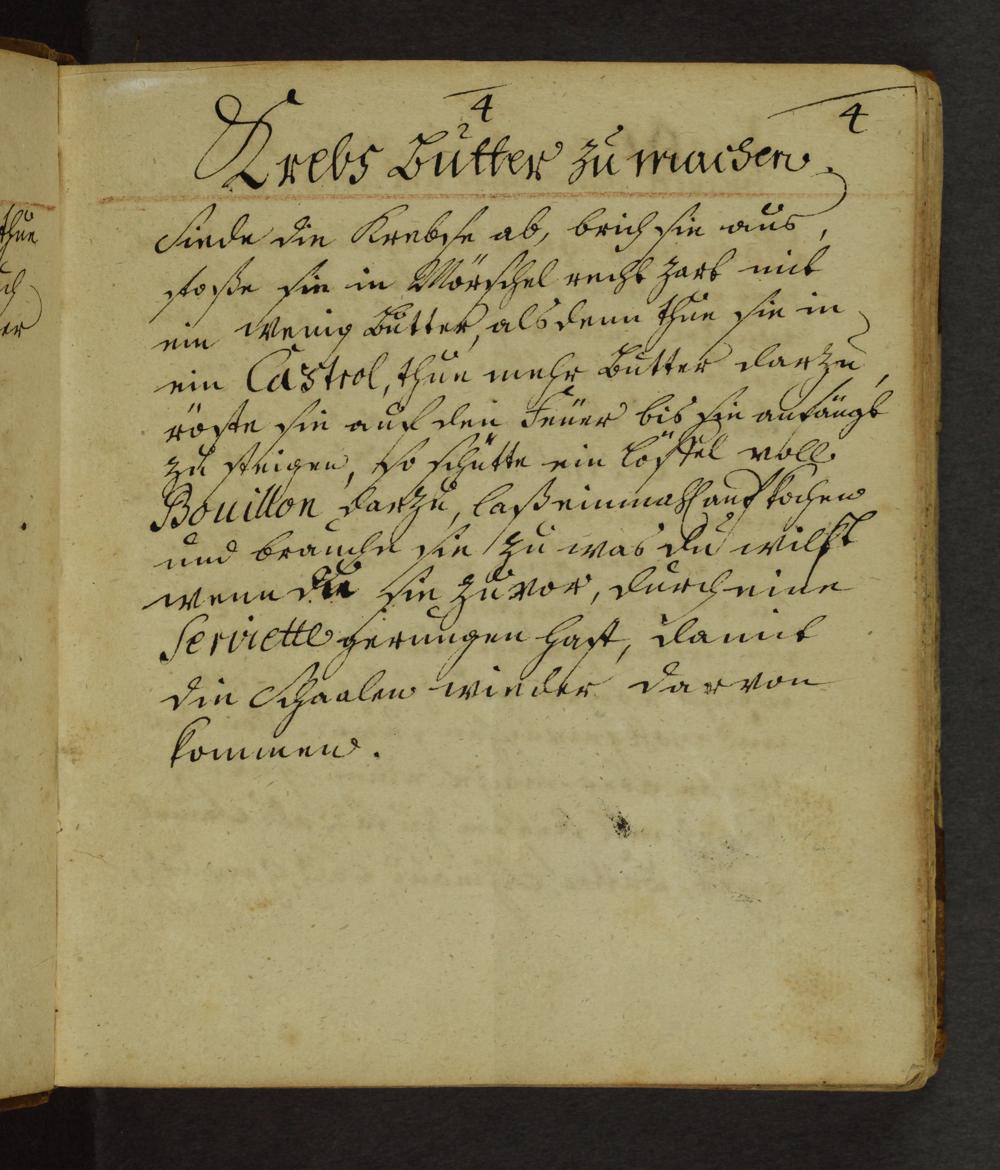 4
4
Krebs Butter zu machen.
Siede die Krebse ab, brich sie aus,
stoße sie in Mörschel recht zart mit
ein wenig Butter, als denn thue sie in
ein Castrol, thue mehr Butter darzu,
röste sie auf den Feuer bis sie anfängt
zu steigen, so schütte ein Löffel voll
Bouillon darzu, laß einmahl auf kochen
und brauche sie zu was du wilst
wenn du sie zuvor, durch eine
Serviette gerungen hast, damit
die Schaalen wieder darvon
kommen.
thue
ch
er